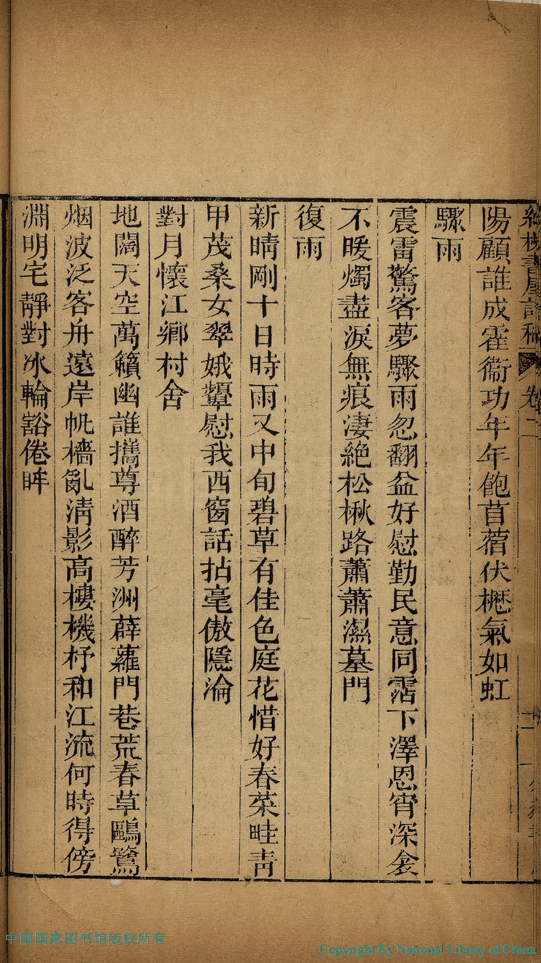 陽顧誰成霍衞功年年飽苜蓿伏櫪氣如虹
驟雨
震雷驚客夢驟雨忽翻盆好慰勤民意同霑下澤恩宵深衾
不暖燭盡淚無痕淒絶松楸路蕭蕭濕墓門
復雨
新晴剛十日時雨又中旬碧草有佳色庭花惜好春菜畦靑
甲茂桑女翠娥顰慰我西窗話拈毫傲隱淪
對月懷江鄉村舍
地闊天空萬籟幽誰攜尊酒醉芳洲薜蘿門巷荒春草鷗鷺
烟波泛客舟遠岸帆檣亂淸影高樓機杼和江流何時得傍
淵明宅靜對冰輪豁倦眸
中國國家图书馆版权所有
Copyright By National Library of China